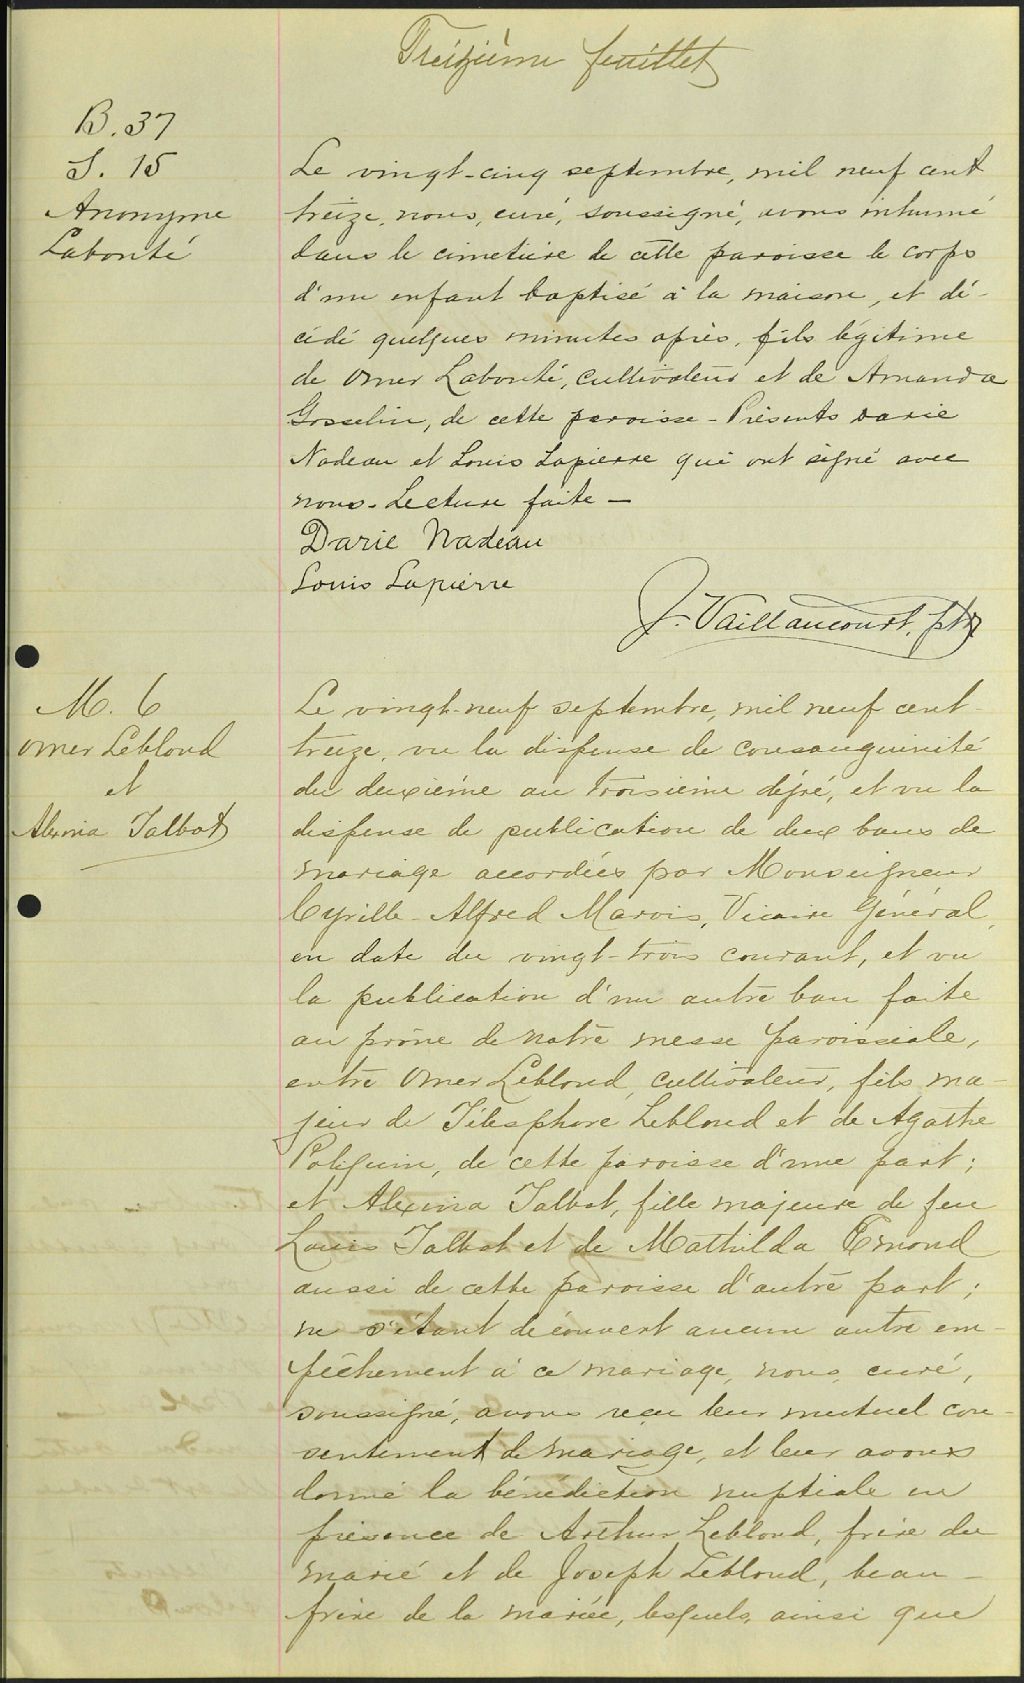 Treizième feuillet
B. 37
S. 15
Anonyme
Labonté
Le vingt-cinq septembre, mil neuf cent
treize, nous, curé, soussigné, avons inhumé
dans le cimetière de cette paroisse le corps
d'un enfant baptisé à la maison, et dé-
cédé quelques minutes après, fils légitime
de Omer Labonté, cultivateur et de Amanda
Gosselin, de cette paroisse - Présents Darie
Nadeau et Louis Lapierre qui ont signé avec
nous. Lecture faite —
Darie Nadeau
Louis Lapierre
J. Vaillancourt, ptre
M. 6
Omer Leblond
et
Alexina Talbot
Le vingt-neuf septembre, mil neuf cent
treize, vu la dispense de consanguinité
du deuxième au troisième dégré, et vu la
dispense de publication de deux bans de
mariage accordées par Monseigneur
Cyrille-Alfred Marois, Vicaire Général,
en date du vingt-trois courant, et vu
la publication d'un autre ban faite
au prône de notre messe paroissiale,
entre Omer Leblond, cultivateur, fils ma-
jeur de Télesphore Leblond et de Agathe
Poliquin, de cette paroisse d'une part;
et Alexina Talbot, fille majeure de feu
Louis Talbot et de Mathilda Emond
aussi de cette paroisse d'autre part;
ne s'étant découvert aucun autre em-
pêchement à ce mariage, nous, curé,
soussigné, avons reçu leur mutuel con-
sentement de mariage, et leur avons
donné la bénédiction nuptiale en
présence de Arthur Leblond, frère du
marié et de Joseph Leblond, beau-
frère de la mariée, lesquels, ainsi que